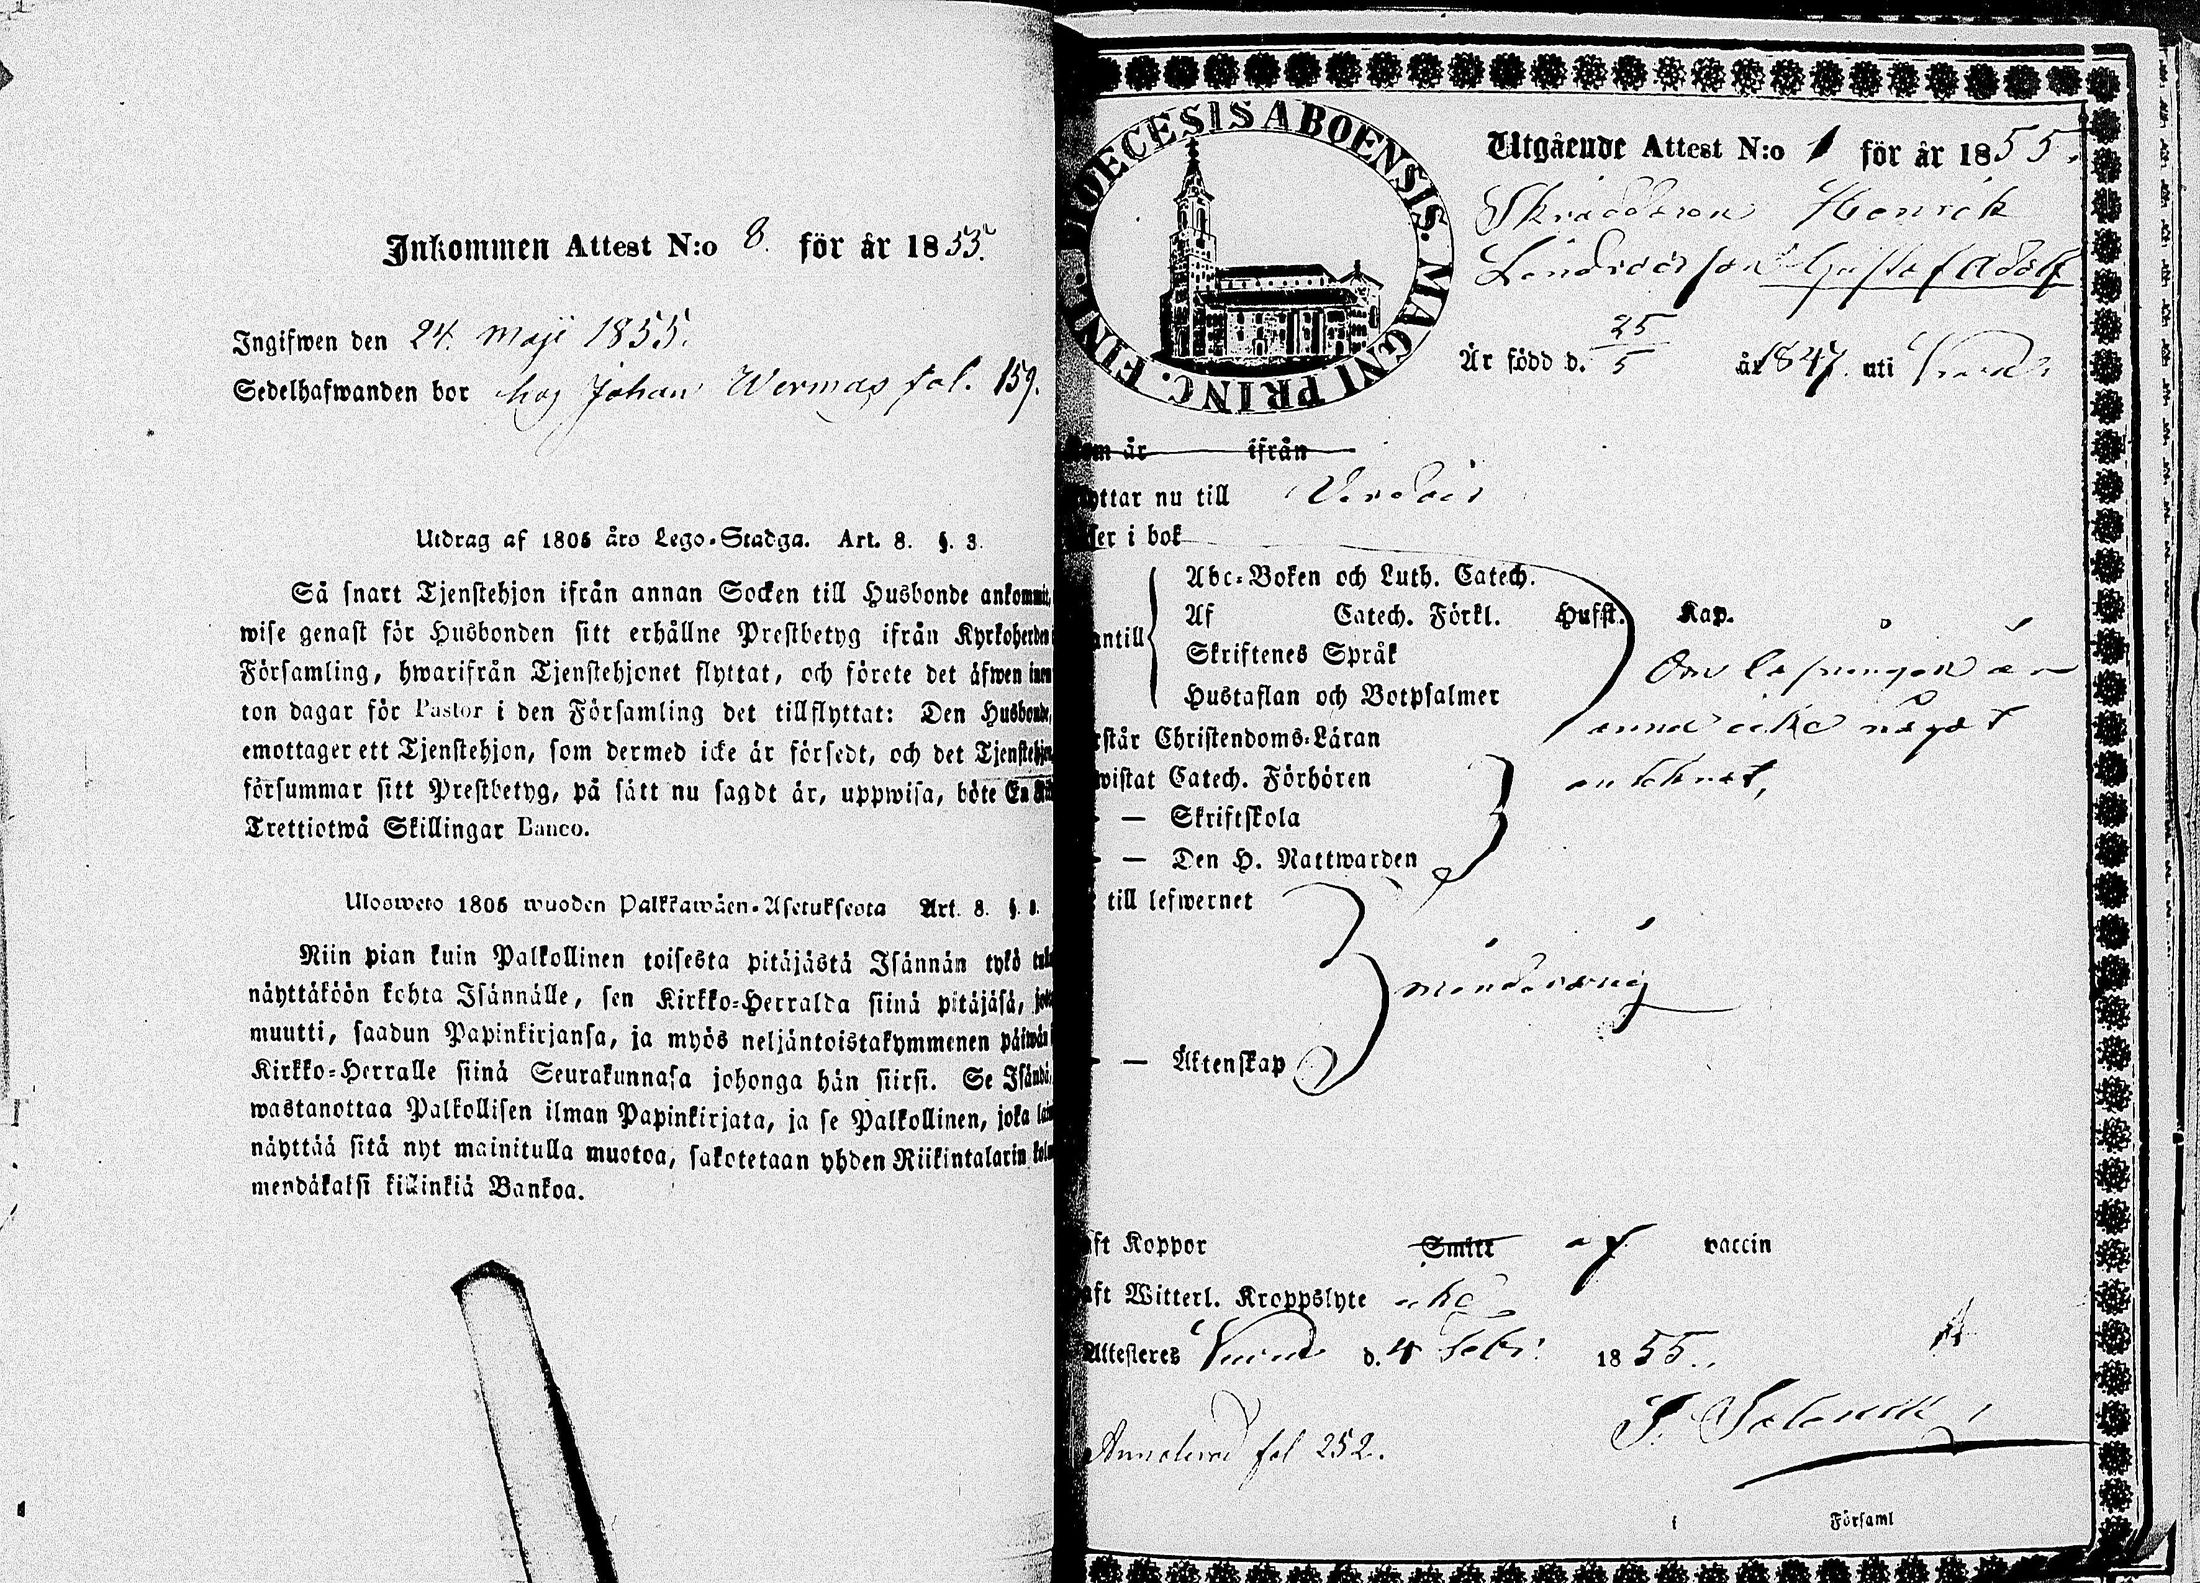 Inkommen Attest N:o 8. för år 1855.
Ingifwen den 24. Maji 1855.
Sedelhafwanden bor hos Johan Wermas fol. 159.
Utdrag af 1805 års Lego-Stadga. Art. 8. §. 3.
Så snart Tjenstehjon ifrån annan Socken till Husbonde ankommit,
wise genast för Husbonden sitt erhållne Prestbetyg ifrån Kyrkoherden
Församling, hwarifrån Tjenstehjonet flyttat, och förete det äfwen inom
ton dagar för Pastor i den Församling det tillflyttat: Den Husbonde,
emottager ett Tjenstehjon, som dermed icke är försedt, och det Tjenstehjon,
försummar sitt Prestbetyg, på sätt nu sagdt är, uppwisa, böte En
Trettiotwå Skillingar Banco.
Ulosweto 1805 wuoden Palkkawäen-Asetuksesta Art. 8. §.
Niin pian kuin Palkollinen toisesta pitäjästä Isännän tykö
näyttäköön kohta Isännälle, sen Kirkko-Herralda siinä pitäjäsä,
muutti, saadun Papinkirjansa, ja myös neljäntoistakymmenen päiwän
Kirkko-Herralle siinä Seurakunnasa johonga hän siirsi. Se Isändä,
wastanottaa Palkollisen ilman Papinkirjata, ja se Palkollinen, joka
näyttää sitä nyt mainitulla muotoa, sakotetaan yhden Riikintalarin
mendäkatsi killinkiä Bankoa.
DIOECESIS ABOENSIS. MAGNI PRINC. FINL.
Utgående Attest N:o 1 för år 1855.
Skräddaren Henrik
Gustaf Adolf
Är född d. 25/5 år 1847. uti
Kom år ifrån
yttar nu till
ser i bok
Abc-Boken och Luth. Catech.
Af Catech. Förkl. Husst. Kap.
antill Skriftenes Språk
Hustaflan och Botpsalmer
Om läsningen är
ännu icke något
antecknat,
rstår Christendoms-Läran
wistat Catech. Förhören
— Skriftskola
— Den H. Nattwarden
till lefwernet
minderårig
— Äktenskap
ft Koppor Smitt af vaccin
aft Witterl. Kroppslyte icke
Attesteres d. 4 Febr. 1855.
Annoterad fol 252.
i Församl